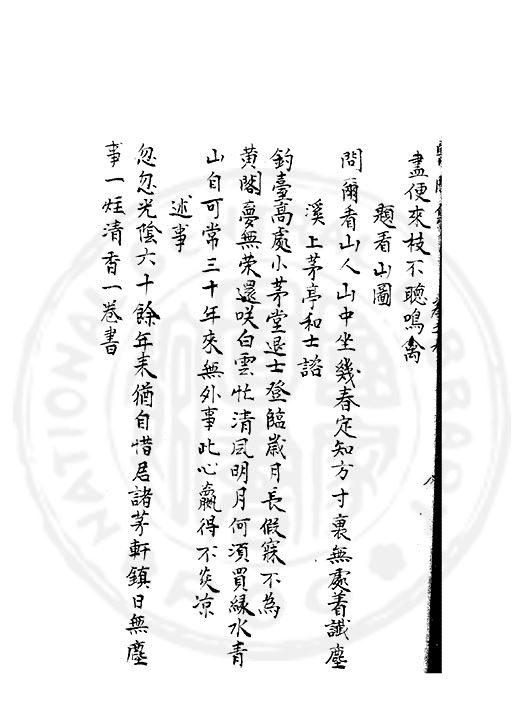 盡便來枝不聰鳴禽
題看山圖
問爾看山人山中坐幾春定知方寸裏無處着讖塵
溪上茅亭和士諮
釣臺高處小茅堂退士登臨歲月長假寐不為
黄閣夢無荣還咲白雲忙清風明月何須買緑水青
山自可常三十年來無外事此心贏得不炎凉
述事
忽忽光陰六十餘年耒猶自惜居諸茅軒鎮日無塵
事一炷清香一卷書